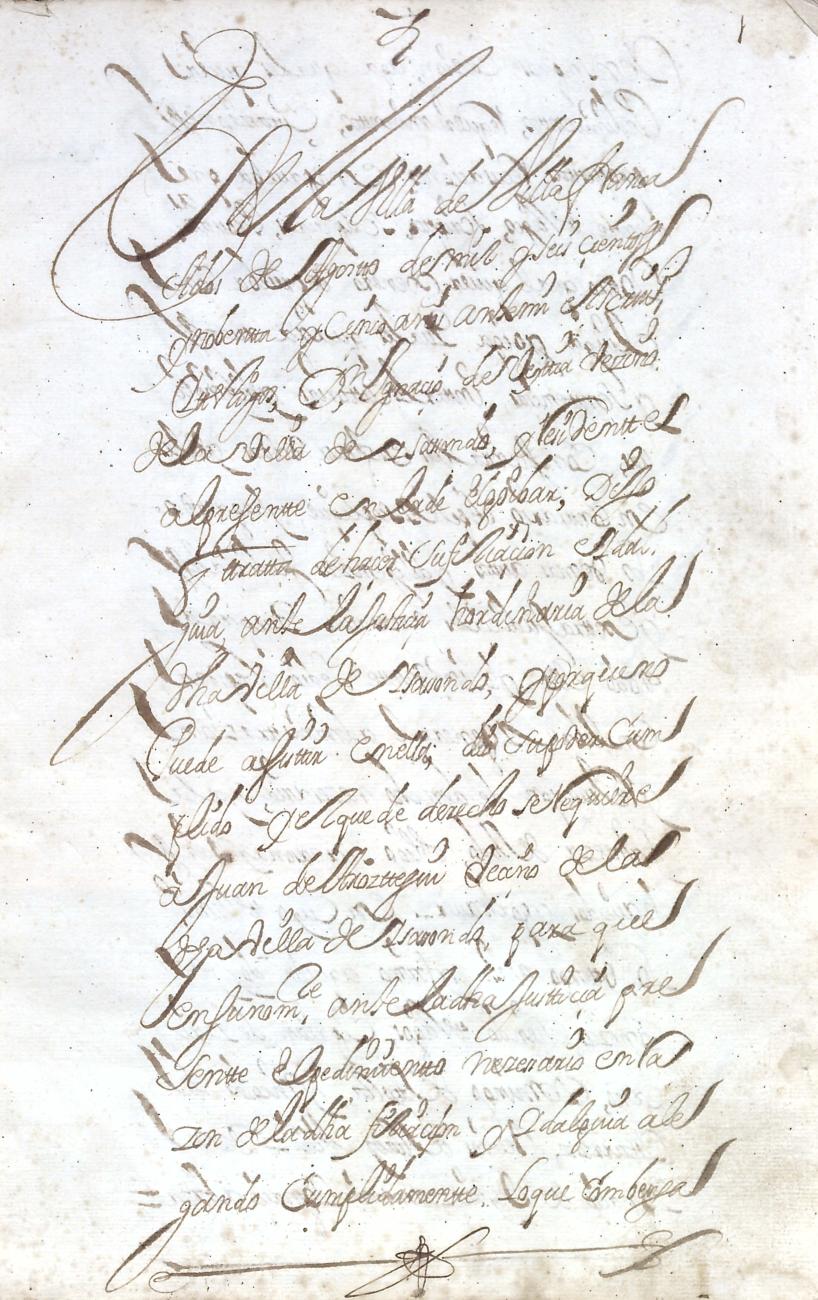 1
En la Villa de Villa franca
a dos de Agosto de mil y seis cientos
y nobenta y Cinco ante mi el Scriuno
Y testigos, Dn Ignacio de vecino
de la Villa de Usarondo, y residentte
al presentte en la de elgoibar; Dijo
tratta de hacer su filiacion e Idal
guia, ante la Justicia hordinaria de la
dha Villa de Usarondo, y porque no
Puede asistir en ella; dio su poder Cum
plido y el que de derecho se requiere
a Juan de Aroztegui vecino de la
dha Villa de Usarondo, para que
en su nome, ante la dha Justicia pre
sentte el pedimientto nezesario en ra
zon de la dha filiacion y Idalguia ale
gando Cumplidamentte lo que Combenga